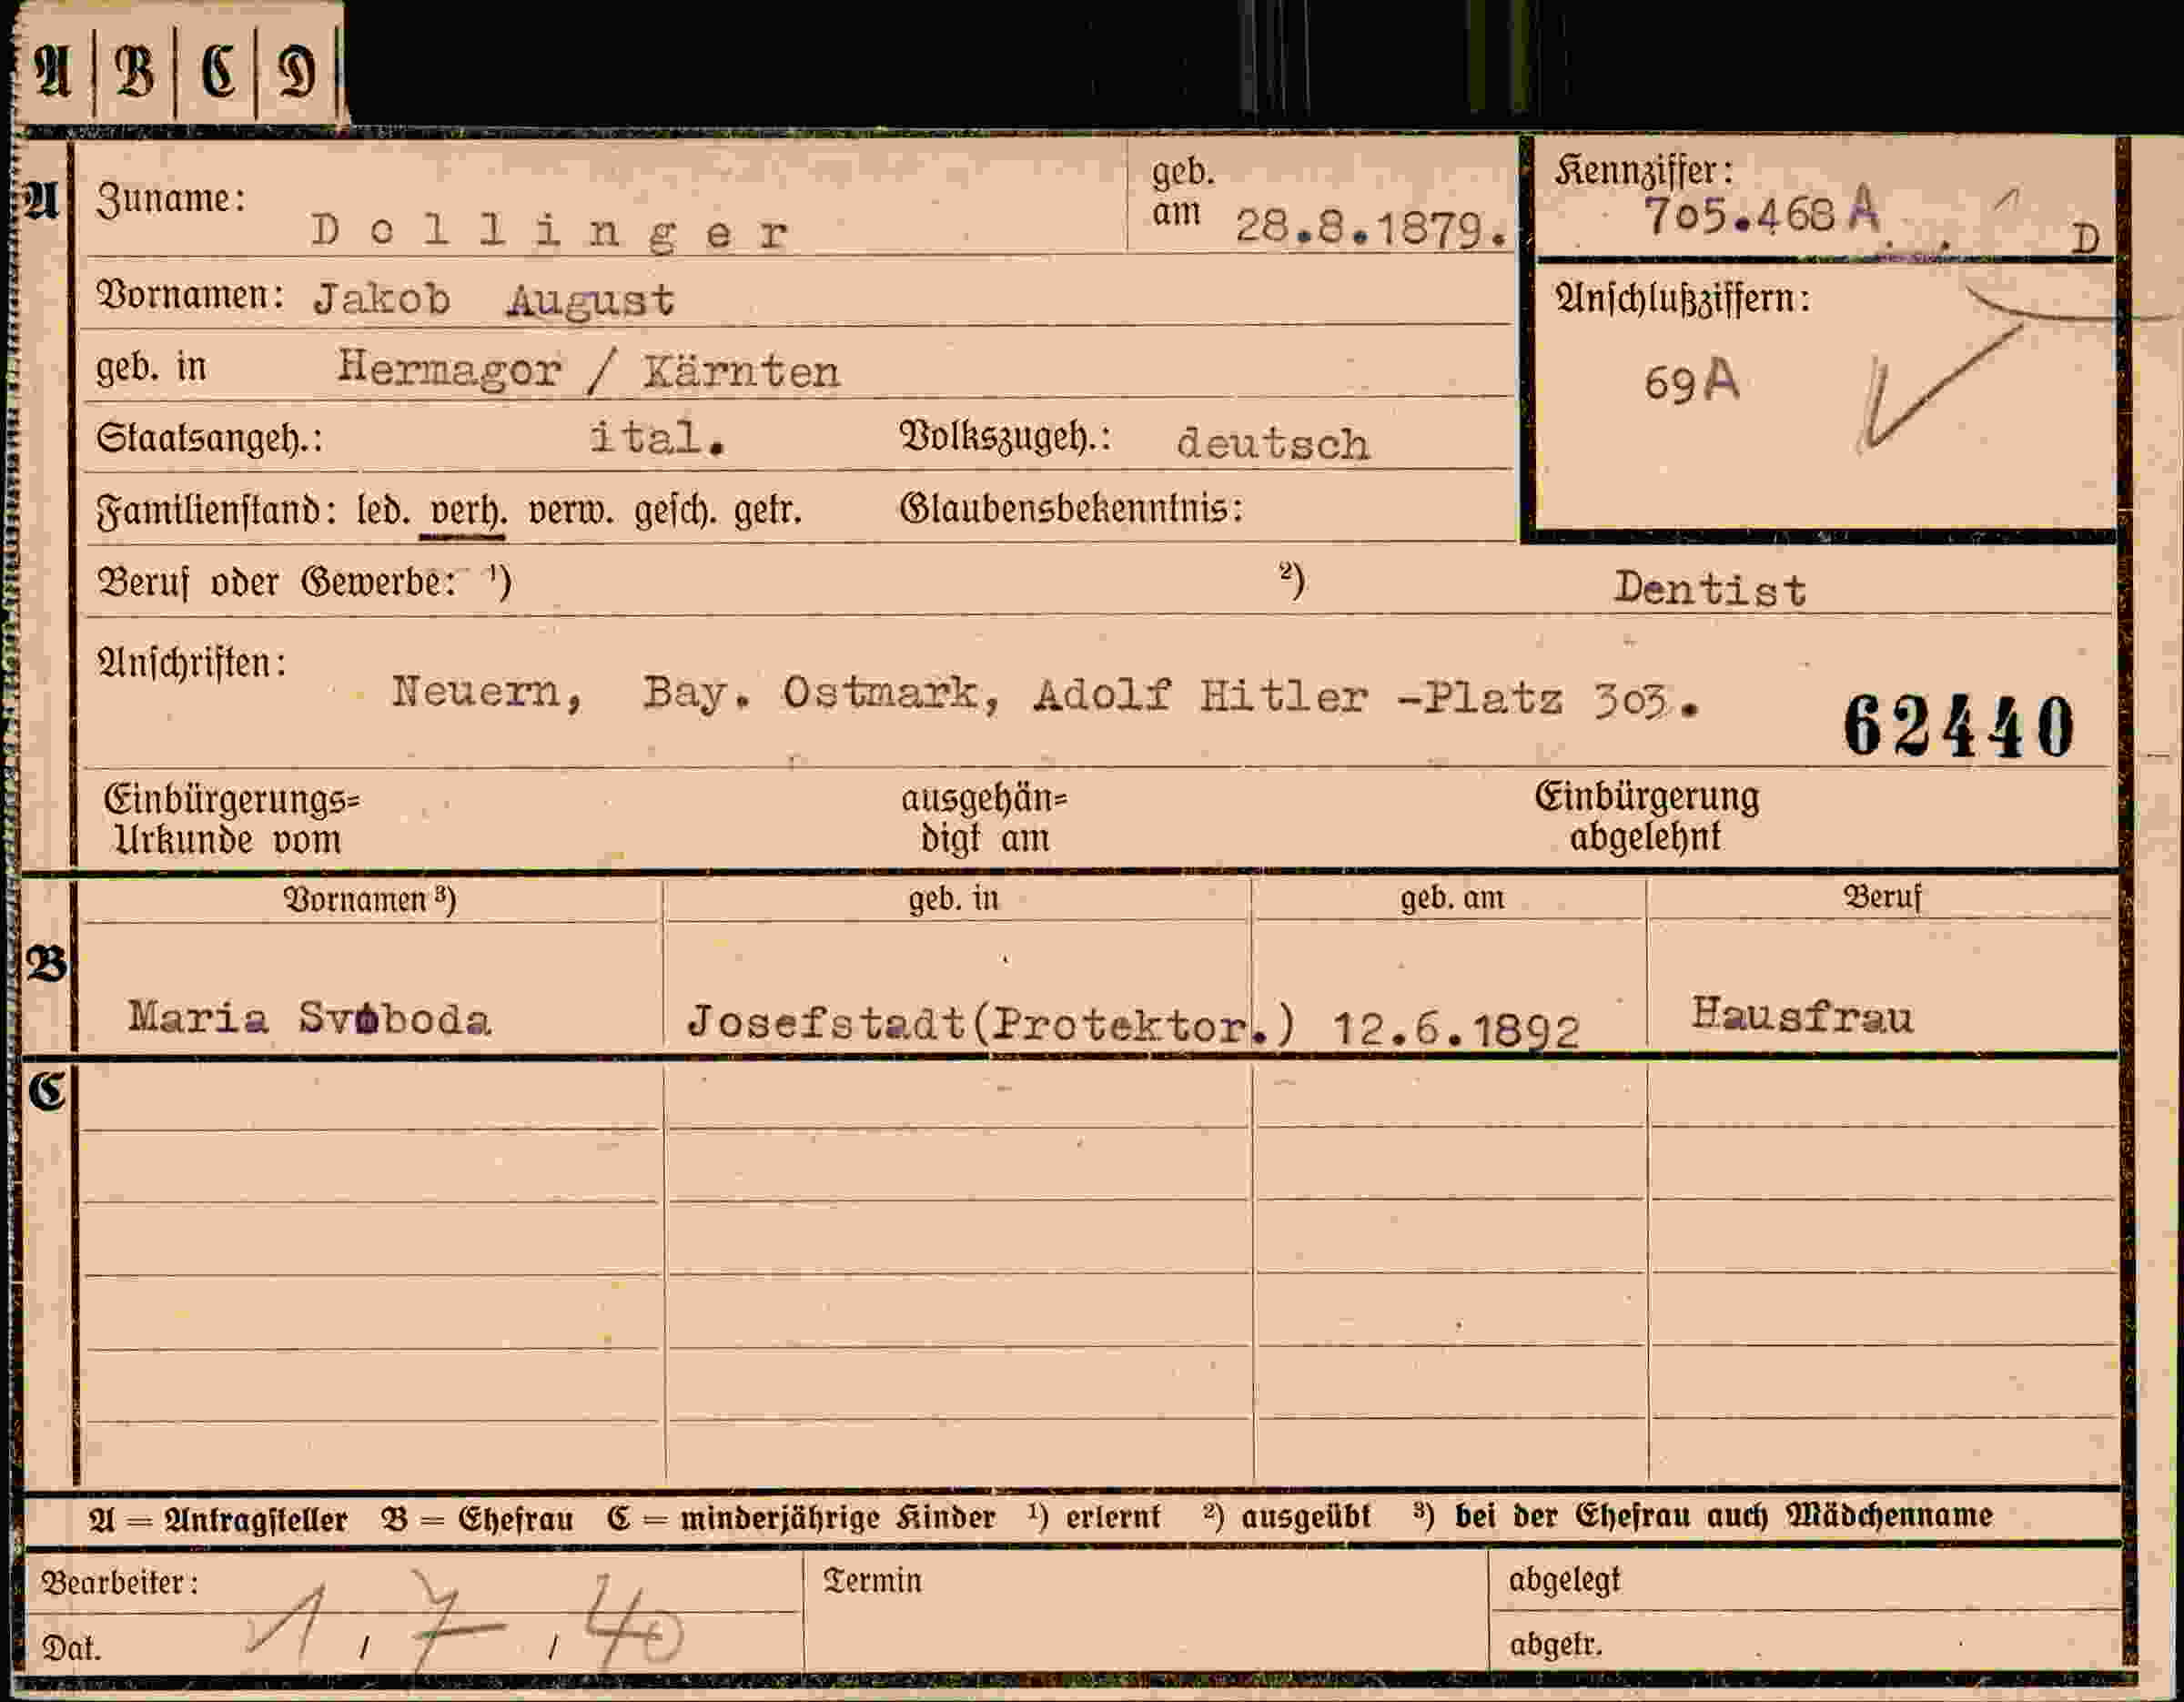 A | B | C | D
A Zuname: Dollinger geb. am 28.8.1879.
Kennziffer: 705.468 A D
Vornamen: Jakob August
geb. in Hermagor / Kärnten
Anschlußziffern:
69 A
Staatsangeh.: ital. Volkszugeh.: deutsch
Familienstand: led. verh. verw. gesch. getr. Glaubensbekenntnis:
Beruf oder Gewerbe: ¹) ²) Dentist
Anschriften: Neuern, Bay. Ostmark, Adolf Hitler -Platz 303.
62440
Einbürgerungs= ausgehän= Einbürgerung
Urkunde vom digt am abgelehnt
Vornamen ³) geb. in geb. am Beruf
B Maria Svoboda Josefstadt(Protektor.) 12.6.1892 Hausfrau
C
A = Antragsteller B = Ehefrau C = minderjährige Kinder ¹) erlernt ²) ausgeübt ³) bei der Ehefrau auch Mädchenname
Bearbeiter: Termin abgelegt
Dat. 1 / 7 / 40 abgetr.